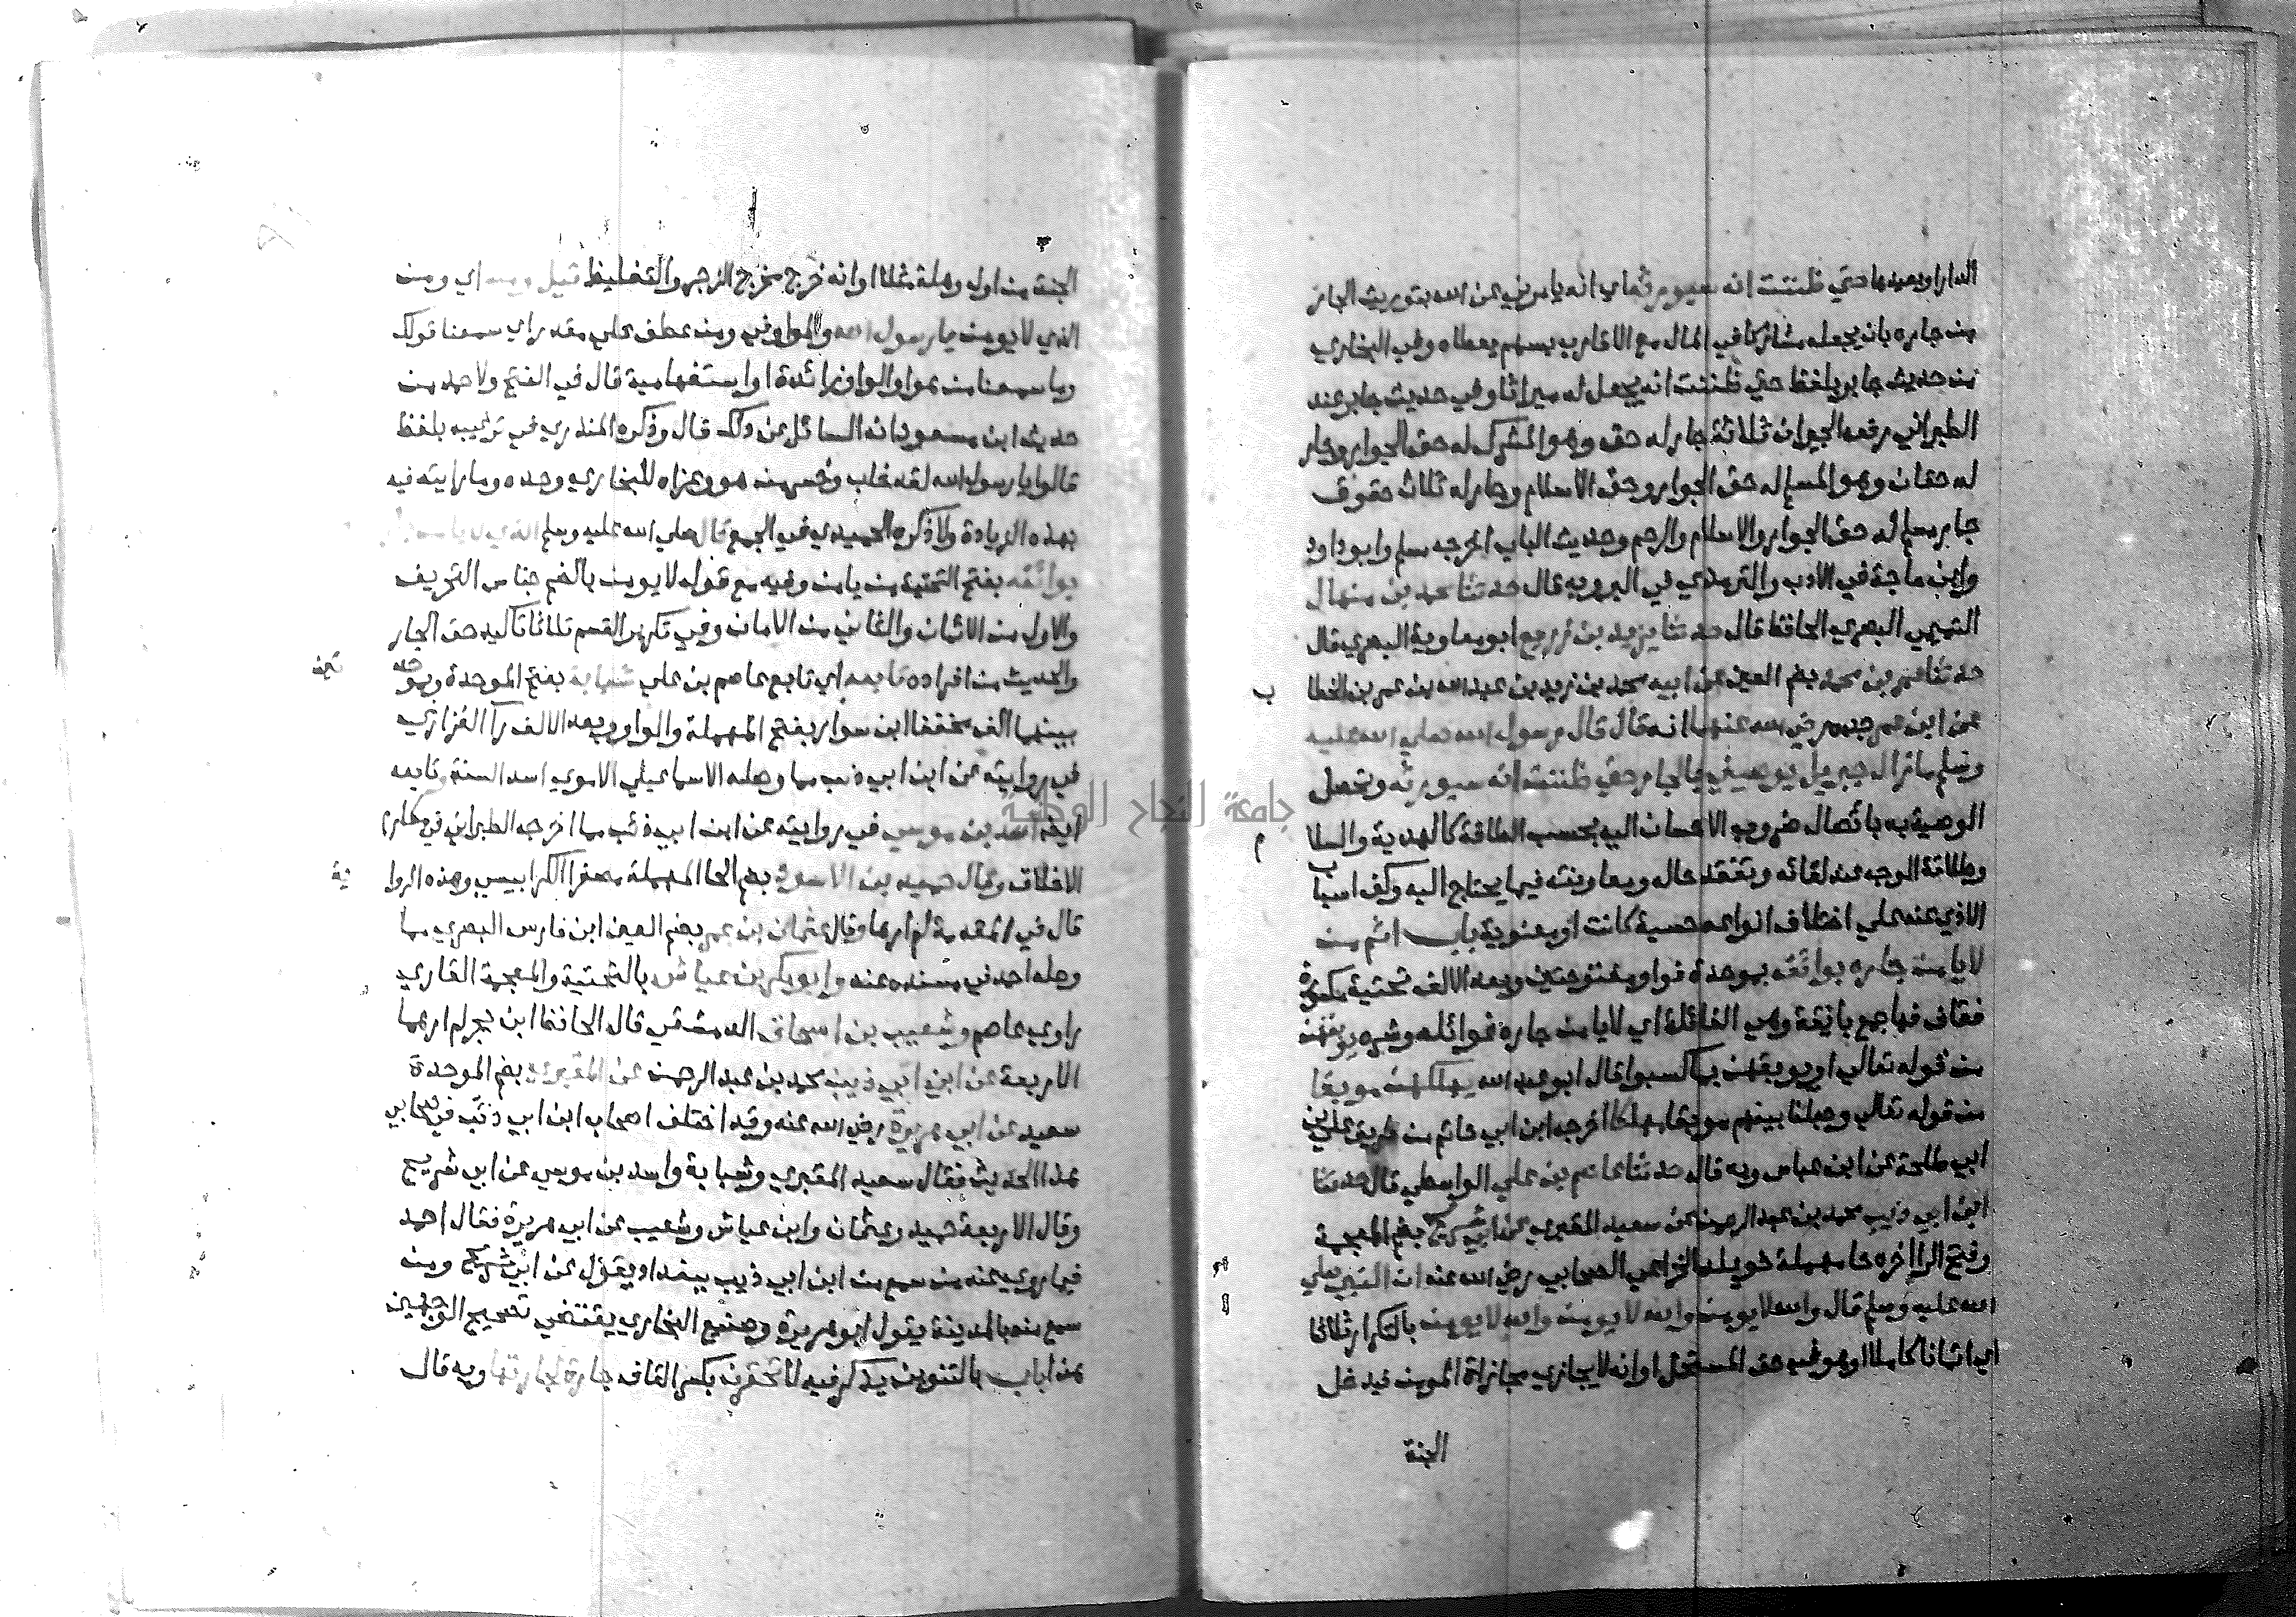 الدار او بعيدها حتي ظننت انه سيورثه اي انه يامرني عن الله بتوريث الجار
من جاره بان يجعله مشاركا في المال مع الاقارب بسهم يعطاه وفي البخاري
من حديث جابر بلفظ حتي ظننت انه يجعل له ميراثا وفي حديث جابر عند
الطبراني رفعه الجيران ثلاثة جار له حق وهو المشرك له حق الجوار وجار
له حقان وهو المسلم له حق الجوار وحق الاسلام وجار له ثلاث حقوق
جار مسلم له حق الجوار والاسلام والرحم وحديث الباب اخرجه مسلم وابو داود
وابن ماجة في الادب والترمذي في البر وبه قال حدثنا محمد بن منهال
التميمي البصري الحافظ قال حدثنا يزيد بن زريع ابو معاوية البصري قال
حدثنا عمر بن محمد بضم العين عن ابيه محمد بن زيد بن عبد الله بن عمر بن الخطا
ب
عن ابن عمر جده رضي الله عنهما انه قال قال رسول الله صلي الله عليه
وسلم ما زال جبريل يوصيني بالجار حتي ظننت انه سيورثه وتحصل
الوصية به باتصال ضروب الاحسان اليه بحسب الطاقة كالهدية والسلا
م
وطلاقة الوجه عند لقائه وتفقد حاله ومعاونته فيما يحتاج اليه وكف اسباب
الاذي عنه علي اختلاف انواعه حسية كانت او معنوية باب اثم من
لا يامن جاره بوائقه بموحدة فواو مفتوحتين وبعد الالف تحتية مكسورة
فقاف فها جمع بائقة وهي الغائلة اي لا يامن جاره غوائله وشره يوبقهن
من قوله تعالي او يوبقهن بما كسبوا قال ابو عبد الله يهلكهن موبقا
من قوله تعالي وجعلنا بينهم موبقا مهلكا اخرجه ابن ابي حاتم من طريق علي بن
ابي طلحة عن ابن عباس وبه قال حدثنا عاصم بن علي الواسطي قال حدثنا
ابن ابي ذيب محمد بن عبد الرحمن عن سعيد المقبري عن ابي شريح بضم المعجمة
وفتح الرا اخره حا مهملة خويلد الخزاعي الصحابي رضي الله عنه ان النبي صلي
الله عليه وسلم قال والله لا يومن والله لا يومن والله لا يومن بالتكرار ثلاثا
اي ايمانا كاملا او هو في حق المستحل او انه لا يجازي مجازاة المومن فيدخل
الجنة
الجنة من اول وهلة مثلا او انه خرج مخرج الزجر والتغليظ قيل ومن اي ومن
الذي لا يومن يا رسول الله والواو في ومن عطف علي مقدر اي سمعنا قولك
وما سمعنا من هو او الواو زائدة او استفهامية قال في الفتح ولاحمد من
حديث ابن مسعود انه السائل عن ذلك قال وذكره المنذري في ترغيبه بلفظ
قالوا يا رسول الله لقد خاب وخسر من هو وعزاه للبخاري وحده وما رايته فيه
بهذه الزيادة ولا ذكره الحميدي في الجمع قال صلي الله عليه وسلم الذي لا يامن
بوائقه بفتح التحتية من يامن وفيه مع قوله لا يومن بالضم جناس التحريف
والاول من الايمان والثاني من الامان وفي تكرير القسم ثلاثا تاكيد حق الجار
والحديث من افراده تابعه اي تابع عاصم بن علي شبابة بفتح الموحدة وموحد
تين
بينهما الف مخففا ابن سوار بفتح المهملة والواو وبعد الالف را الفزاري
في روايته عن ابن ابي ذيب مما وصله الاسماعيلي الاموي اسد السنة وتابعه
ايضا اسد بن موسي في روايته عن ابن ابي ذئب مما اخرجه الطبراني في مكارم
الاخلاق وقال حميد بن الاسود بضم الحا المهملة مصغرا الكرابيسي وهذه الروا
ية
قال في المقدمة لم ارها وقال عثمان بن عمر بضم العين ابن فارس البصري مما
وصله احمد في مسنده عنه وابو بكر بن عياش بالتحتية والمعجمة القاري
راوي عاصم وشعيب بن اسحاق الدمشقي قال الحافظ ابن حجر لم ارهما
الاربعة عن ابن ابي ذيب محمد بن عبد الرحمن عن المقبري بضم الموحدة
سعيد عن ابي هريرة رضي الله عنه وقد اختلف اصحاب ابن ابي ذئب في صحابي
هذا الحديث فقال سعيد المقبري وشبابة واسد بن موسي عن ابي شريح
وقال الاربعة حميد وعثمان وابن عياش وشعيب عن ابي هريرة فقال احمد
فيما روي عنه من سمع من ابن ابي ذيب ببغداد يقول عن ابي شريح ومن
سمع منه بالمدينة يقول ابو هريرة وصنيع البخاري يقتضي تصحيح الوجهين
هذا باب بالتنوين يذكر فيه لا تحقرن بكسر القاف جارة لجارتها وبه قال
جامعة النجاح الوطنية